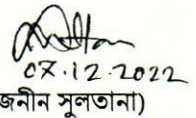 07.12.2022
জনীন সুলতানা)